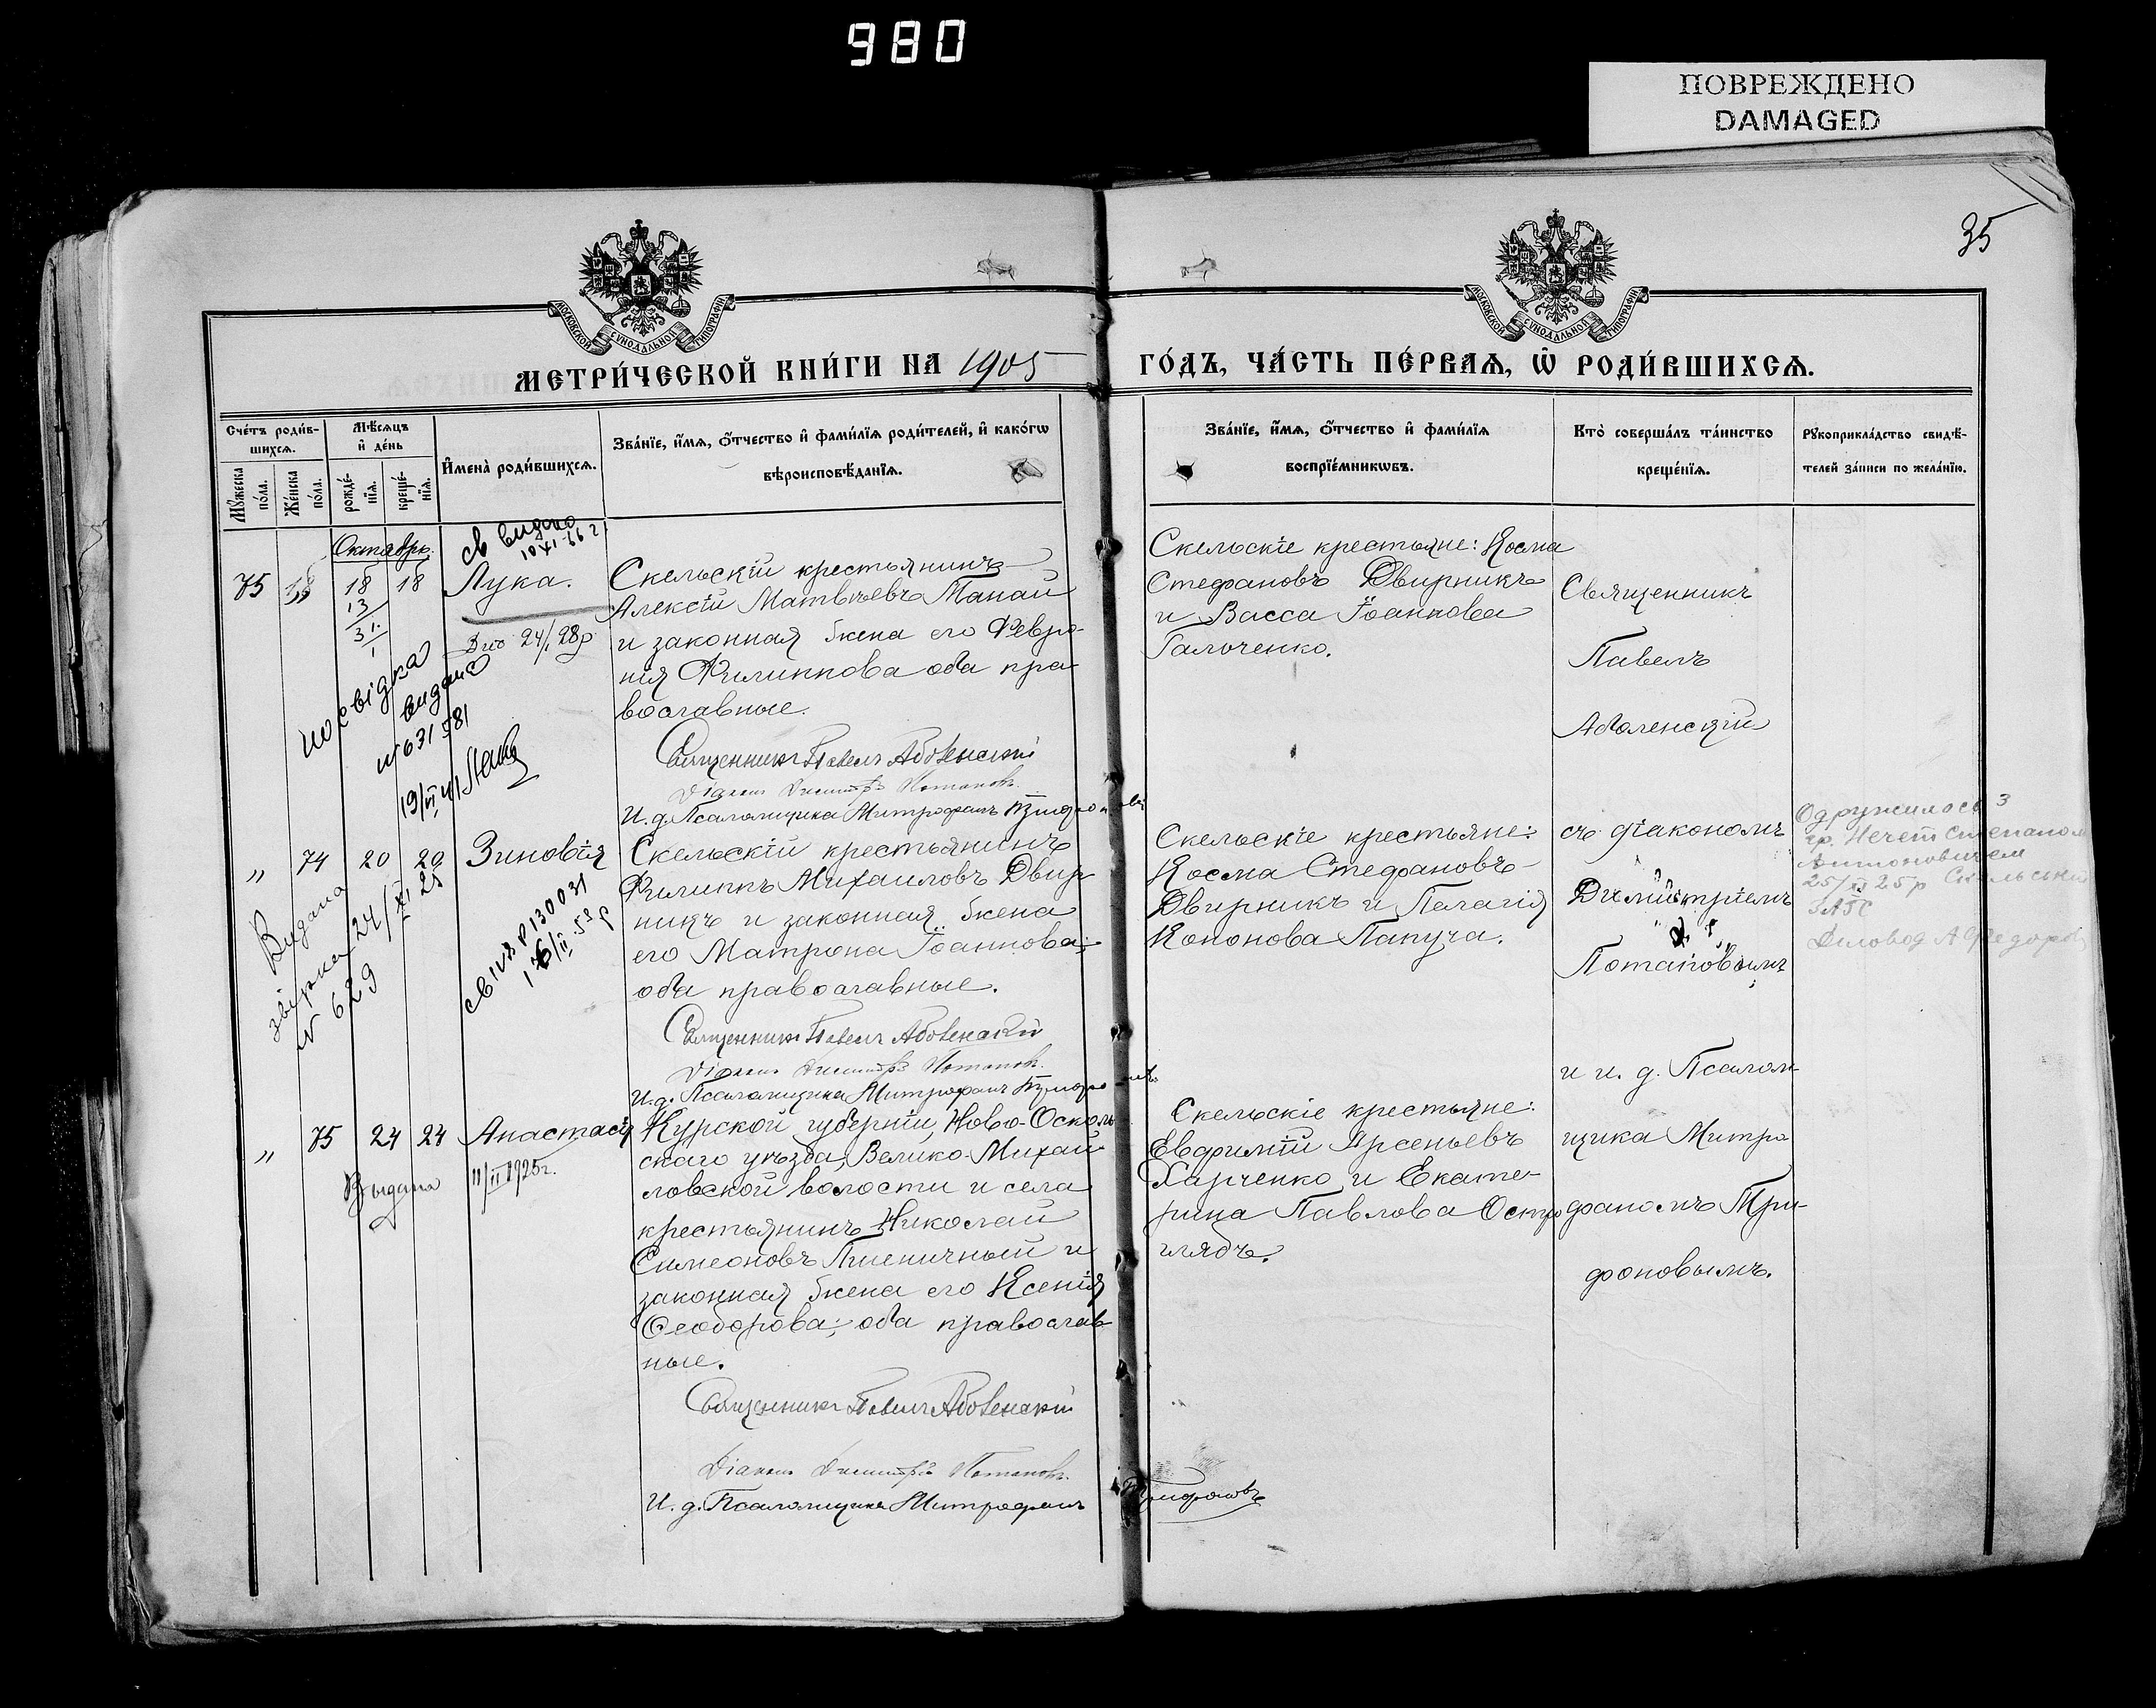 980
ПОВРЕЖДЕНО
DAMAGED
35
МОСКОВСКОЙ СѴНОДАЛЬНОЙ ТИПОГРАФІИ
МОСКОВСКОЙ СѴНОДАЛЬНОЙ ТИПОГРАФІИ
МЕТРИ́ЧЕСКОЙ КНИ́ГИ НА 1905
ГО́ДЪ, ЧА́СТЬ ПЕ́РВАѦ, Ѡ҆ РОДИ́ВШИХСѦ.
Сче́тъ роди́в-
шихсѧ.
Мꙋ́жеска по́ла.
Же́нска по́ла.
Мѣ́сѧцъ
и҆ де́нь
рожде́-
нїѧ.
креще́-
нїѧ.
И҆мена̀ роди́вшихсѧ.
Зва́нїе, и҆́мѧ, ѻ҆́тчество и҆ фами́лїѧ роди́телей, и҆ како́гѡ
вѣроисповѣ́данїѧ.
Зва́нїе, и҆́мѧ, ѻ҆́тчество и҆ фами́лїѧ
воспрїе́мникѡвъ.
Кто̀ соверша́лъ та́инство
креще́нїѧ.
Рꙋкоприкла́дство свидѣ́-
телей за́писи по жела́нїю.
Октябрь
св видано
10 XI-66 г
75
18 18
13
31
Лука.
24/I 28р
посвідка
видана
№ 631581
19/VI 41
Скельскій крестьянинъ
Алексій Матвѣевъ Папай
и законная жена его Февро-
нія Филиппова оба пра-
вославные.
Священникъ Павелъ Аболенскій
Діаконъ Димитрій Потаповъ.
И. д. Псаломщика Митрофанъ Трифоновъ
Скельскіе крестьяне: Косма
Стефановъ Двирникъ
и Васса Іоаннова
Гальченко.
Священникъ
Павелъ
Аболенскій
" 74 20 20 Зиновія
Видана
24/XI 25
№ 629
Скельскій крестьянинъ
Филиппъ Михаиловъ Двир-
никъ и законная жена
его Матрона Іоаннова;
оба православные.
Священникъ Павелъ Аболенскій
Діаконъ Димитрій Потаповъ.
И. д. Псаломщика Митрофанъ Трифоновъ
Скельскіе крестьяне:
Косма Стефановъ
Двирникъ и Пелагія
Кононова Папуча.
съ діакономъ
Димитріемъ
Потаповымъ
и и. д. Псалом-
щика Митро-
фаномъ Три-
фоновымъ.
Одружилась з
гр. Нечет Степаном
Антоновичем
25/XI 25р Скельський
ЗАГС
Діловод
" 75 24 24 Анастасія
Выдана 11/II 1925г.
Курской губерніи, Ново-Осколь-
скаго уѣзда, Велико-Михай-
ловской волости и села
крестьянинъ Николай
Симеоновъ Пшеничный и
законная жена его Ксенія
Ѳеодорова; оба православ-
ные.
Священникъ Павелъ Аболенскій
Діаконъ Димитрій Потаповъ.
И. д. Псаломщика Митрофанъ Трифоновъ
Скельскіе крестьяне:
Евфимій Арсеньевъ
Харченко и Екате-
рина Павлова Остро-
глядъ.